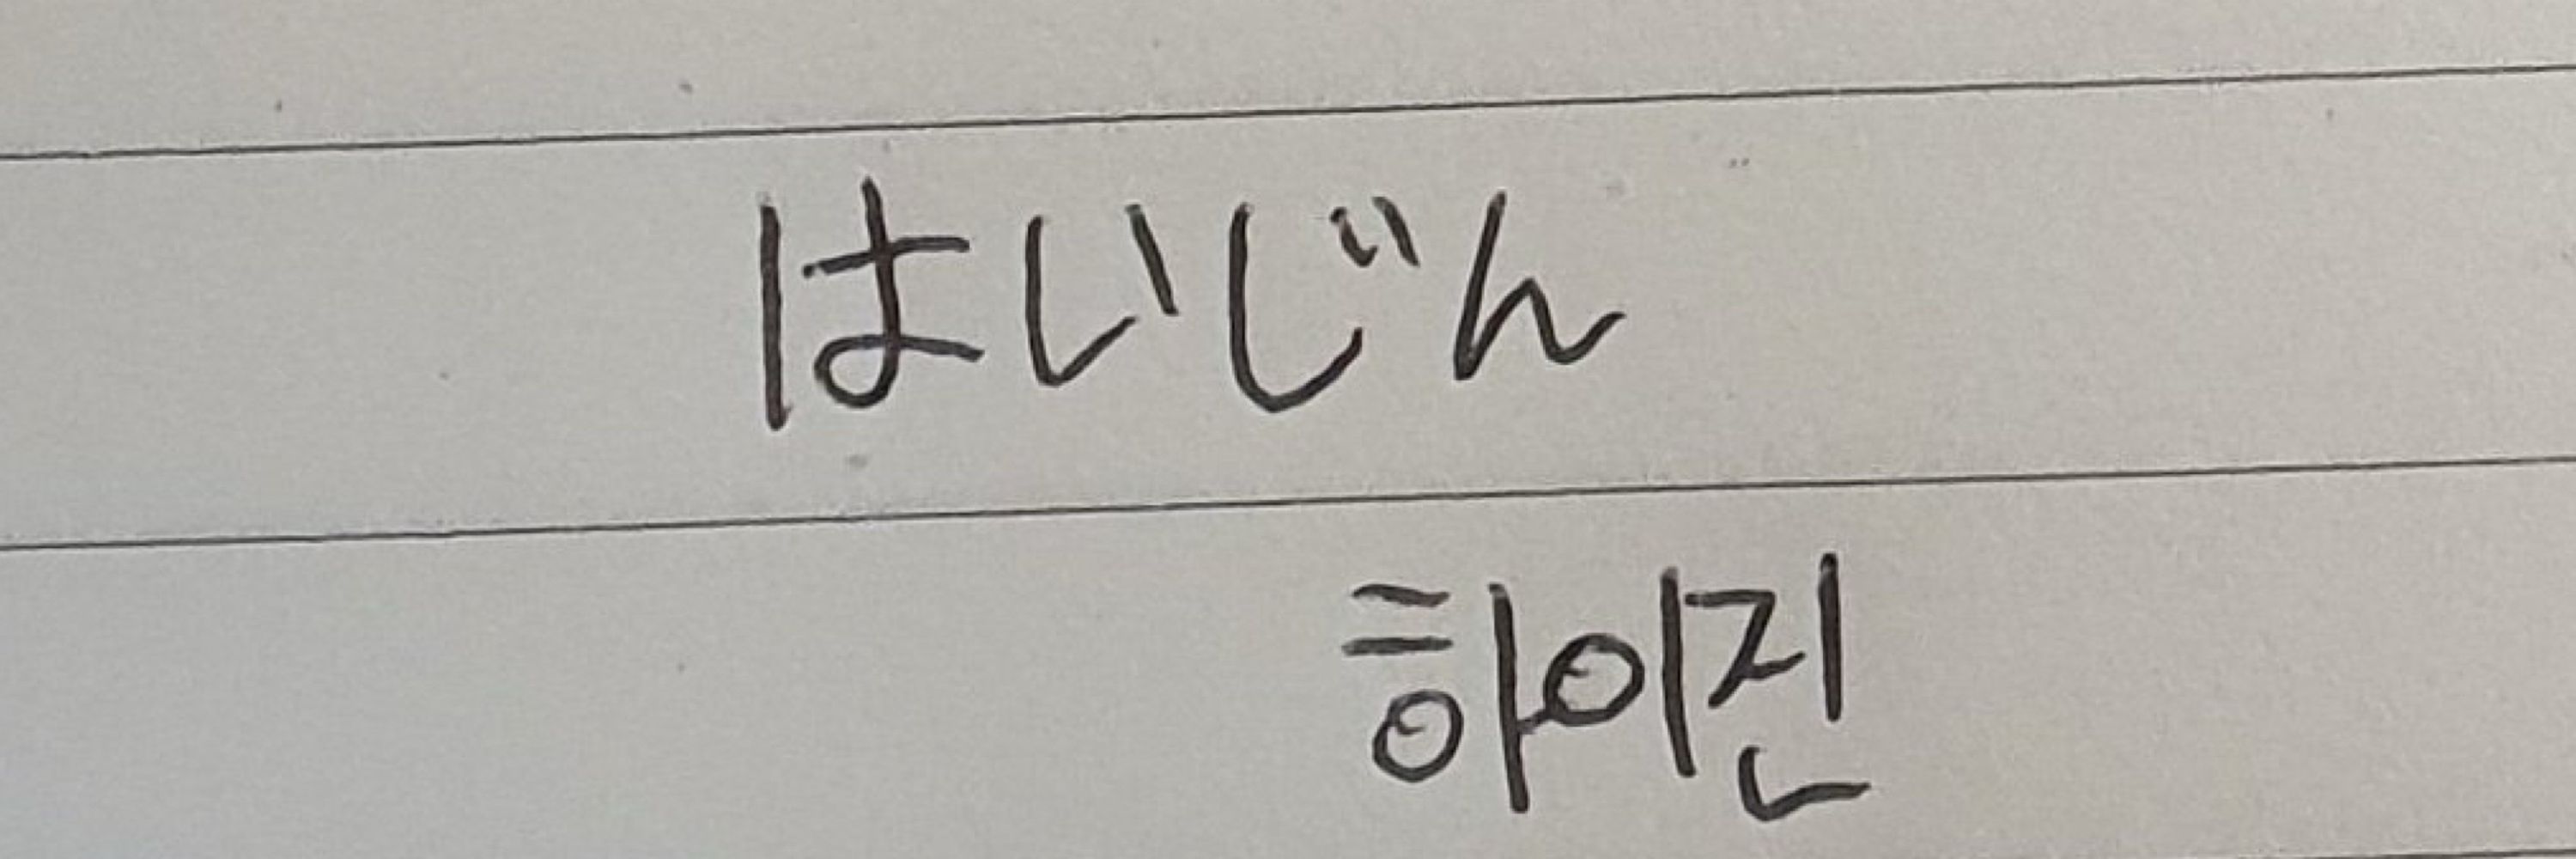 はいじん
하이진